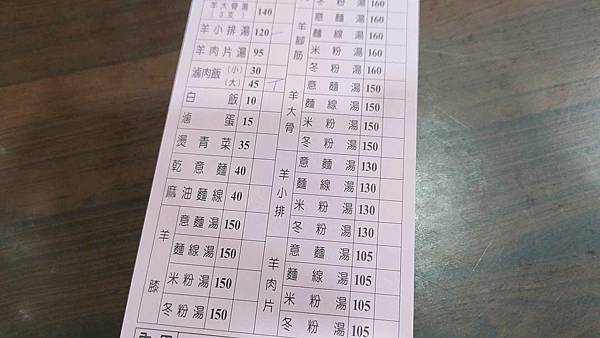 羊大骨湯 140
(3支)
羊小排湯 120
羊肉片湯 95
滷肉飯 (小) 30
(大) 45
白飯 10
滷蛋 15
燙青菜 35
乾意麵 40
麻油麵線 40
羊膝
意麵湯 150
麵線湯 150
米粉湯 150
冬粉湯 150
羊腳筋
湯 160
意麵湯 160
麵線湯 160
米粉湯 160
冬粉湯 160
羊大骨
意麵湯 150
麵線湯 150
米粉湯 150
冬粉湯 150
羊小排
意麵湯 130
麵線湯 130
米粉湯 130
冬粉湯 130
羊肉片
意麵湯 105
麵線湯 105
米粉湯 105
冬粉湯 105